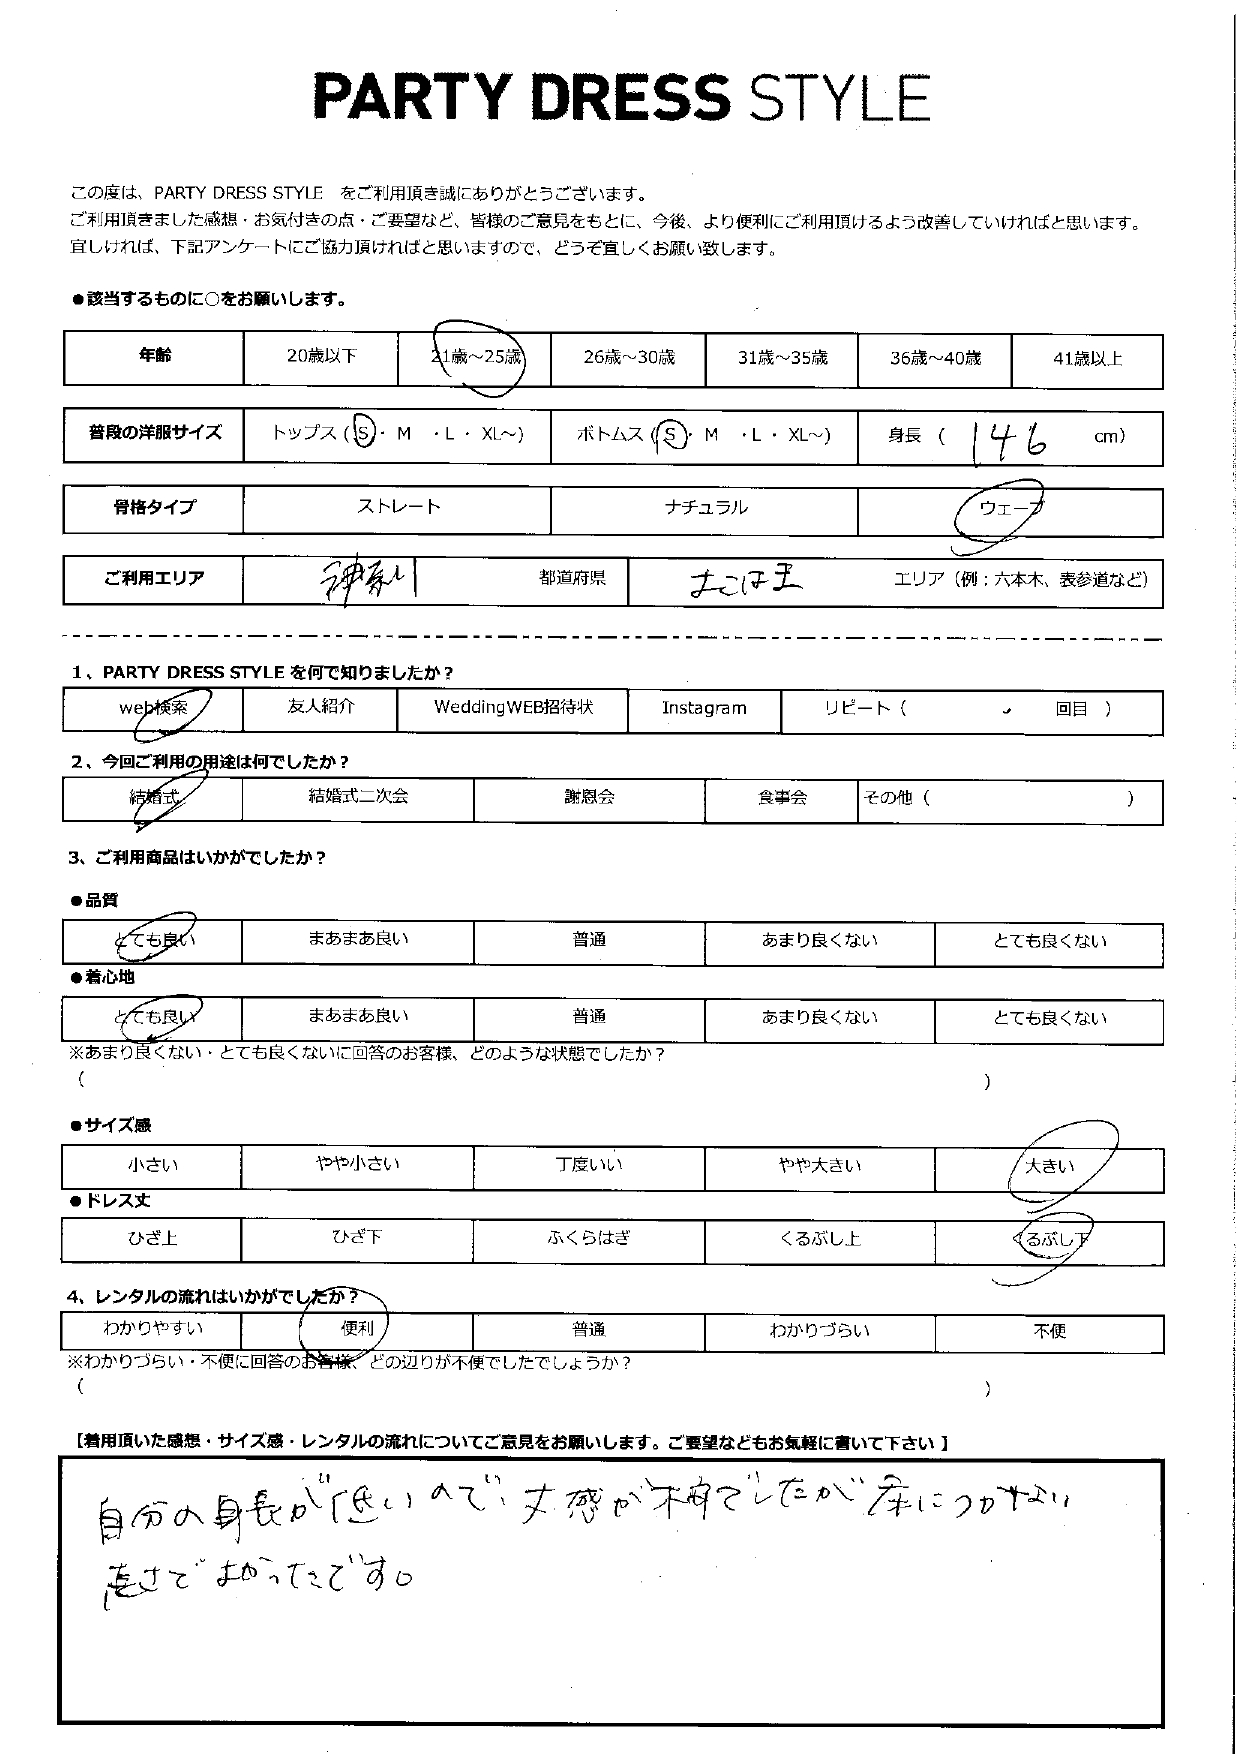 PARTY DRESS STYLE
この度は、PARTY DRESS STYLE をご利用頂き誠にありがとうございます。
ご利用頂きました感想・お気付きの点・ご要望など、皆様のご意見をもとに、今後、より便利にご利用頂けるよう改善していければと思います。
宜しければ、下記アンケートにご協力頂ければと思いますので、どうぞ宜しくお願い致します。
●該当するものに○をお願いします。
年齢 20歳以下 21歳～25歳 26歳～30歳 31歳～35歳 36歳～40歳 41歳以上
普段の洋服サイズ トップス (S・ M ・L ・ XL～) ボトムス (S・ M ・L ・ XL～) 身長 ( 146 cm)
骨格タイプ ストレート ナチュラル ウェーブ
ご利用エリア 神奈川 都道府県 よこはま エリア（例；六本木、表参道など）
1、PARTY DRESS STYLE を何で知りましたか？
web検索 友人紹介 WeddingWEB招待状 Instagram リピート（ 回目 ）
2、今回ご利用の用途は何でしたか？
結婚式 結婚式二次会 謝恩会 食事会 その他（ ）
3、ご利用商品はいかがでしたか？
●品質
とても良い まあまあ良い 普通 あまり良くない とても良くない
●着心地
とても良い まあまあ良い 普通 あまり良くない とても良くない
※あまり良くない・とても良くないに回答のお客様、どのような状態でしたか？
（ ）
●サイズ感
小さい やや小さい 丁度いい やや大きい 大きい
●ドレス丈
ひざ上 ひざ下 ふくらはぎ くるぶし上 くるぶし下
4、レンタルの流れはいかがでしたか？
わかりやすい 便利 普通 わかりづらい 不便
※わかりづらい・不便に回答のお客様、どの辺りが不便でしたでしょうか？
（ ）
【着用頂いた感想・サイズ感・レンタルの流れについてご意見をお願いします。ご要望などもお気軽に書いて下さい 】
自分の身長が低いので、丈感が不安でしたが床につかない
長さでよかったです。